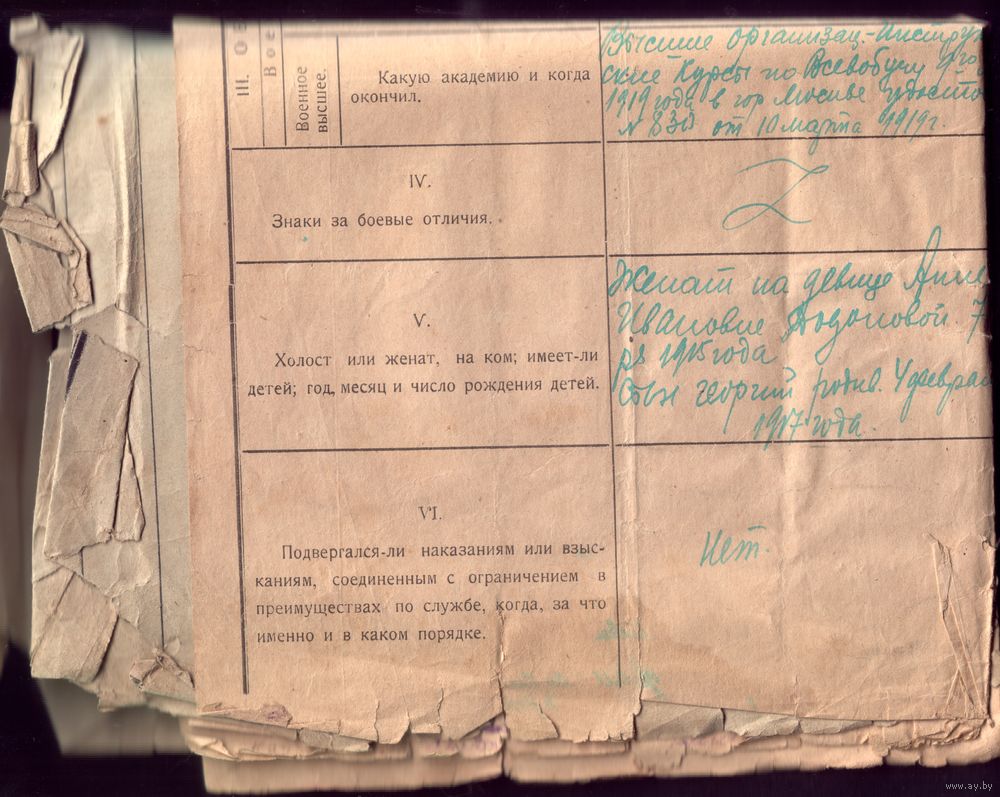 III. ОБ
Вое
Военное
высшее.
Какую академию и когда
окончил.
Высшие организац.-Инструк
ские Курсы по Всевобучу
1919 года в гор Москве удосто
от 10 марта 1919 г.
IV.
Знаки за боевые отличия.
Z
V.
Холост или женат, на ком; имеет-ли
детей; год, месяц и число рождения детей.
Женат на девице Анне
Ивановне 7
1915 года
Сын Георгий родив. 4 феврал
1917 года.
VI.
Подвергался-ли наказаниям или взыс-
каниям, соединенным с ограничением в
преимуществах по службе, когда, за что
именно и в каком порядке.
Нет.
www.ay.by